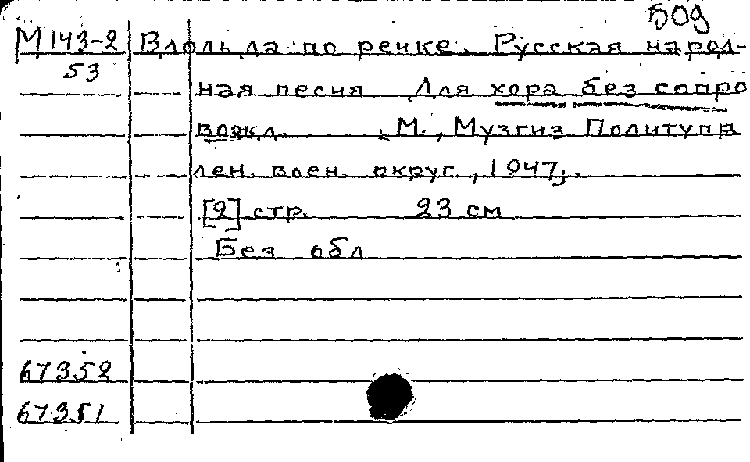 509
М 143-2 Вдоль да по речке. Русская народ-
53
ная песня Для хора без сопро
вожд. , М., Музгиз Политупр
лен. воен. округ., 1947,.
[2] стр. 23 см
Без обл
67352
67351